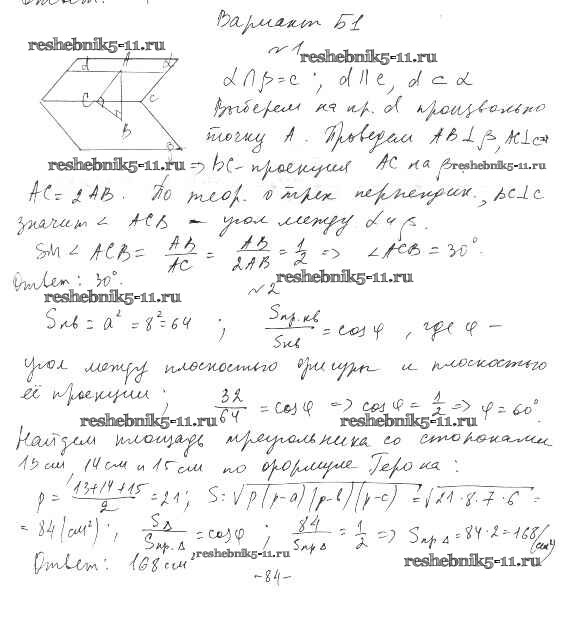 Вариант Б1
reshebnik5-11.ru
№1
reshebnik5-11.ru
d A α
α ∩ β = c ; d ∥ c, d ⊂ α
C c
Выберем на пр. d произвольно
B
точку A. Проведем AB ⊥ β, AC ⊥ c
β
reshebnik5-11.ru
⇒ BC - проекция AC на β
reshebnik5-11.ru
AC = 2AB. По теор. о трех перпендик., BC ⊥ c
значит ∠ ACB - угол между α и β.
Sin ∠ ACB = AB/AC = AB/2AB = 1/2 ⇒ ∠ACB = 30°.
reshebnik5-11.ru
Ответ: 30°.
reshebnik5-11.ru
№2
Sкв = a² = 8² = 64 ; Sпр.кв/Sкв = cos φ , где φ -
угол между плоскостью фигуры и плоскостью
её проекции ; 32/64 = cos φ ⇒ cos φ = 1/2 ⇒ φ = 60°.
reshebnik5-11.ru reshebnik5-11.ru
Найдем площадь треугольника со сторонами
13 см, 14 см и 15 см по формуле Герона:
p = (13+14+15)/2 = 21; S = √(p(p-a)(p-b)(p-c)) = √(21·8·7·6) =
= 84 (см²); SΔ/Sпр.Δ = cos φ ; 84/SпрΔ = 1/2 ⇒ SпрΔ = 84·2 = 168 (см²)
Ответ: 168 см²
reshebnik5-11.ru
reshebnik5-11.ru
-84-